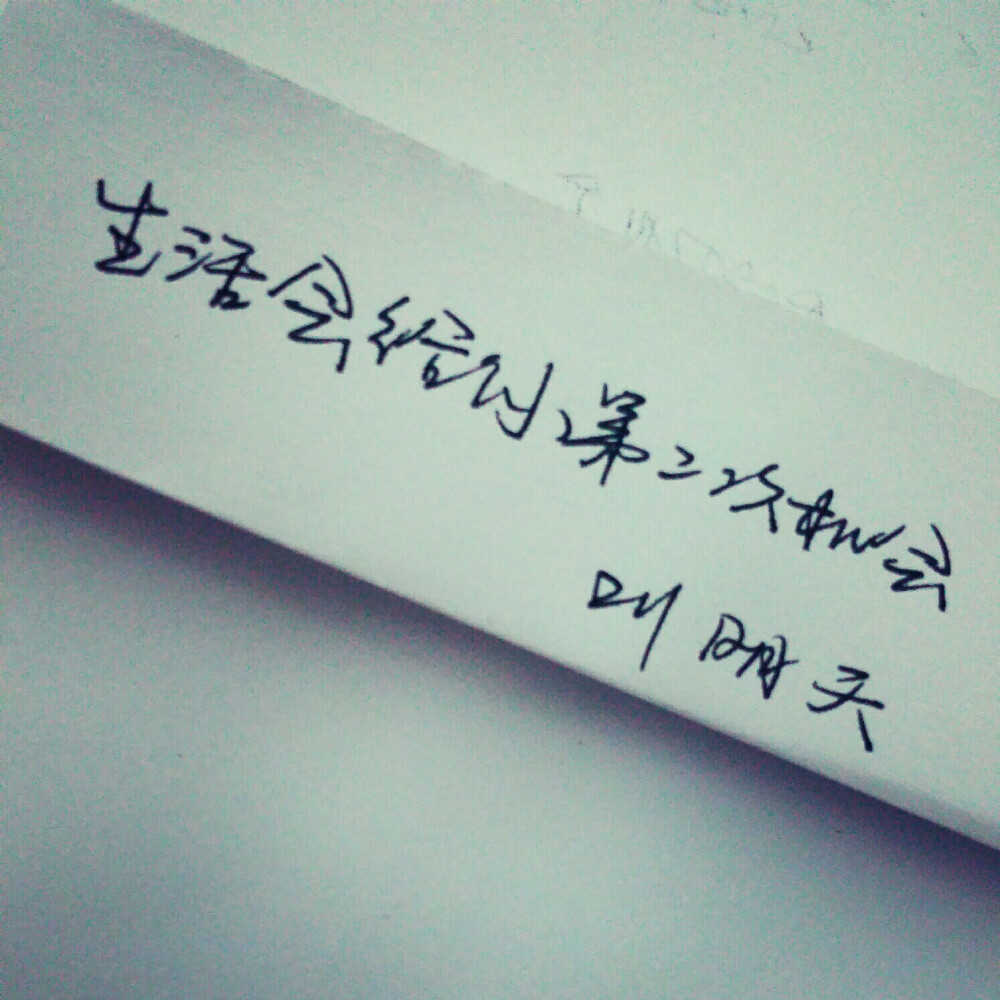 生活会给你第二次机会
叫明天